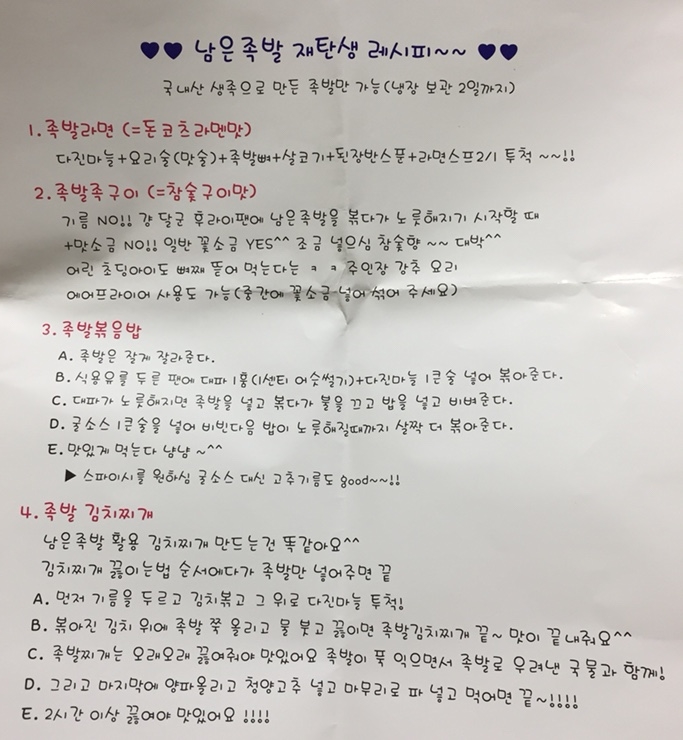 ♥♥ 남은족발 재탄생 레시피~~ ♥♥
국내산 생족으로 만든 족발만 가능(냉장 보관 2일까지)
1.족발라면 (=돈코츠라멘맛)
다진마늘+요리술(맛술)+족발뼈+살코기+된장반스푼+라면스프2/1 투척 ~~!!
2.족발족구이 (=참숯구이맛)
기름 NO!! 걍 달군 후라이팬에 남은족발을 볶다가 노릇해지기 시작할 때
+맛소금 NO!! 일반 꽃소금 YES^^ 조금 넣으심 참숯향 ~~ 대박^^
어린 초딩아이도 뼈째 뜯어 먹는다는 ㅋ ㅋ 주인장 강추 요리
에어프라이어 사용도 가능(중간에 꽃소금 넣어 섞어 주세요)
3.족발볶음밥
A. 족발은 잘게 잘라준다.
B. 식용유를 두른 팬에 대파 1홉(1센티 어슷썰기)+다진마늘 1큰술 넣어 볶아준다.
C. 대파가 노릇해지면 족발을 넣고 볶다가 불을 끄고 밥을 넣고 비벼준다.
D. 굴소스 1큰술을 넣어 비빈다음 밥이 노릇해질때까지 살짝 더 볶아준다.
E. 맛있게 먹는다 냠냠 ~^^
▶ 스파이시를 원하심 굴소스 대신 고추기름도 good~~!!
4.족발 김치찌개
남은족발 활용 김치찌개 만드는건 똑같아요^^
김치찌개 끓이는법 순서에다가 족발만 넣어주면 끝
A. 먼저 기름을 두르고 김치볶고 그 위로 다진마늘 투척!
B. 볶아진 김치 위에 족발 쭉 올리고 물 붓고 끓이면 족발김치찌개 끝~ 맛이 끝내줘요^^
C. 족발찌개는 오래오래 끓여줘야 맛있어요 족발이 푹 익으면서 족발로 우려낸 국물과 함께!
D. 그리고 마지막에 양파올리고 청양고추 넣고 마무리로 파 넣고 먹어면 끝~!!!!
E. 2시간 이상 끓여야 맛있어요 !!!!